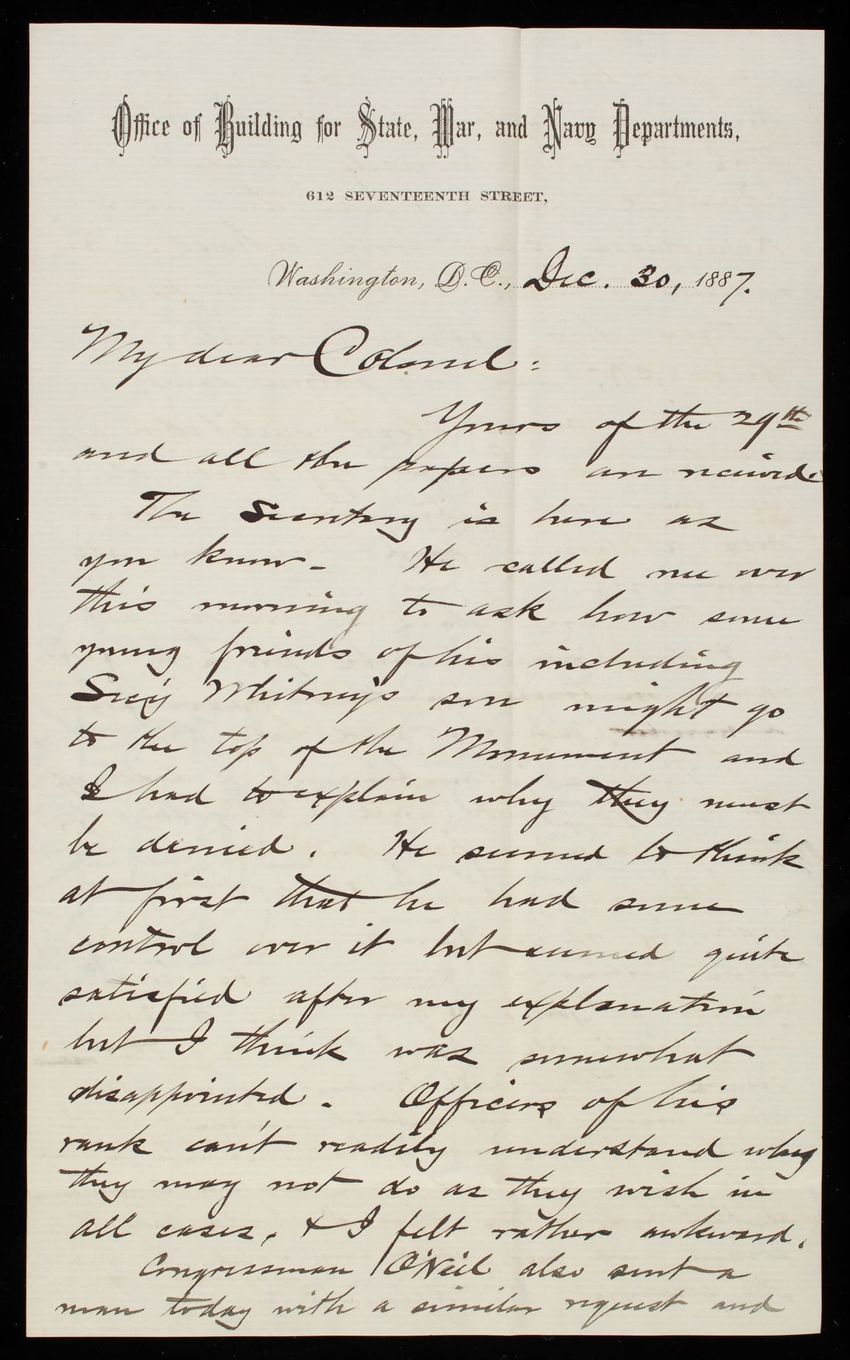 Office of Building for State, War, and Navy Departments,
612 SEVENTEENTH STREET,
Washington, D. C., Dec. 30, 1887.
My dear Colonel:
Yours of the 29th
and all the papers are received.
The Secretary is here as
you know - He called me over
this morning to ask how some
young friends of his including
Sec'y Whitney's son might go
to the top of the Monument and
I had to explain why they must
be denied. He seemed to think
at first that he had some
control over it but seemed quite
satisfied after my explanation
but I think was somewhat
disappointed. Officers of his
rank can't readily understand why
they may not do as they wish in
all cases, & I felt rather awkward.
Congressman O'Neil also sent a
man today with a similar request and